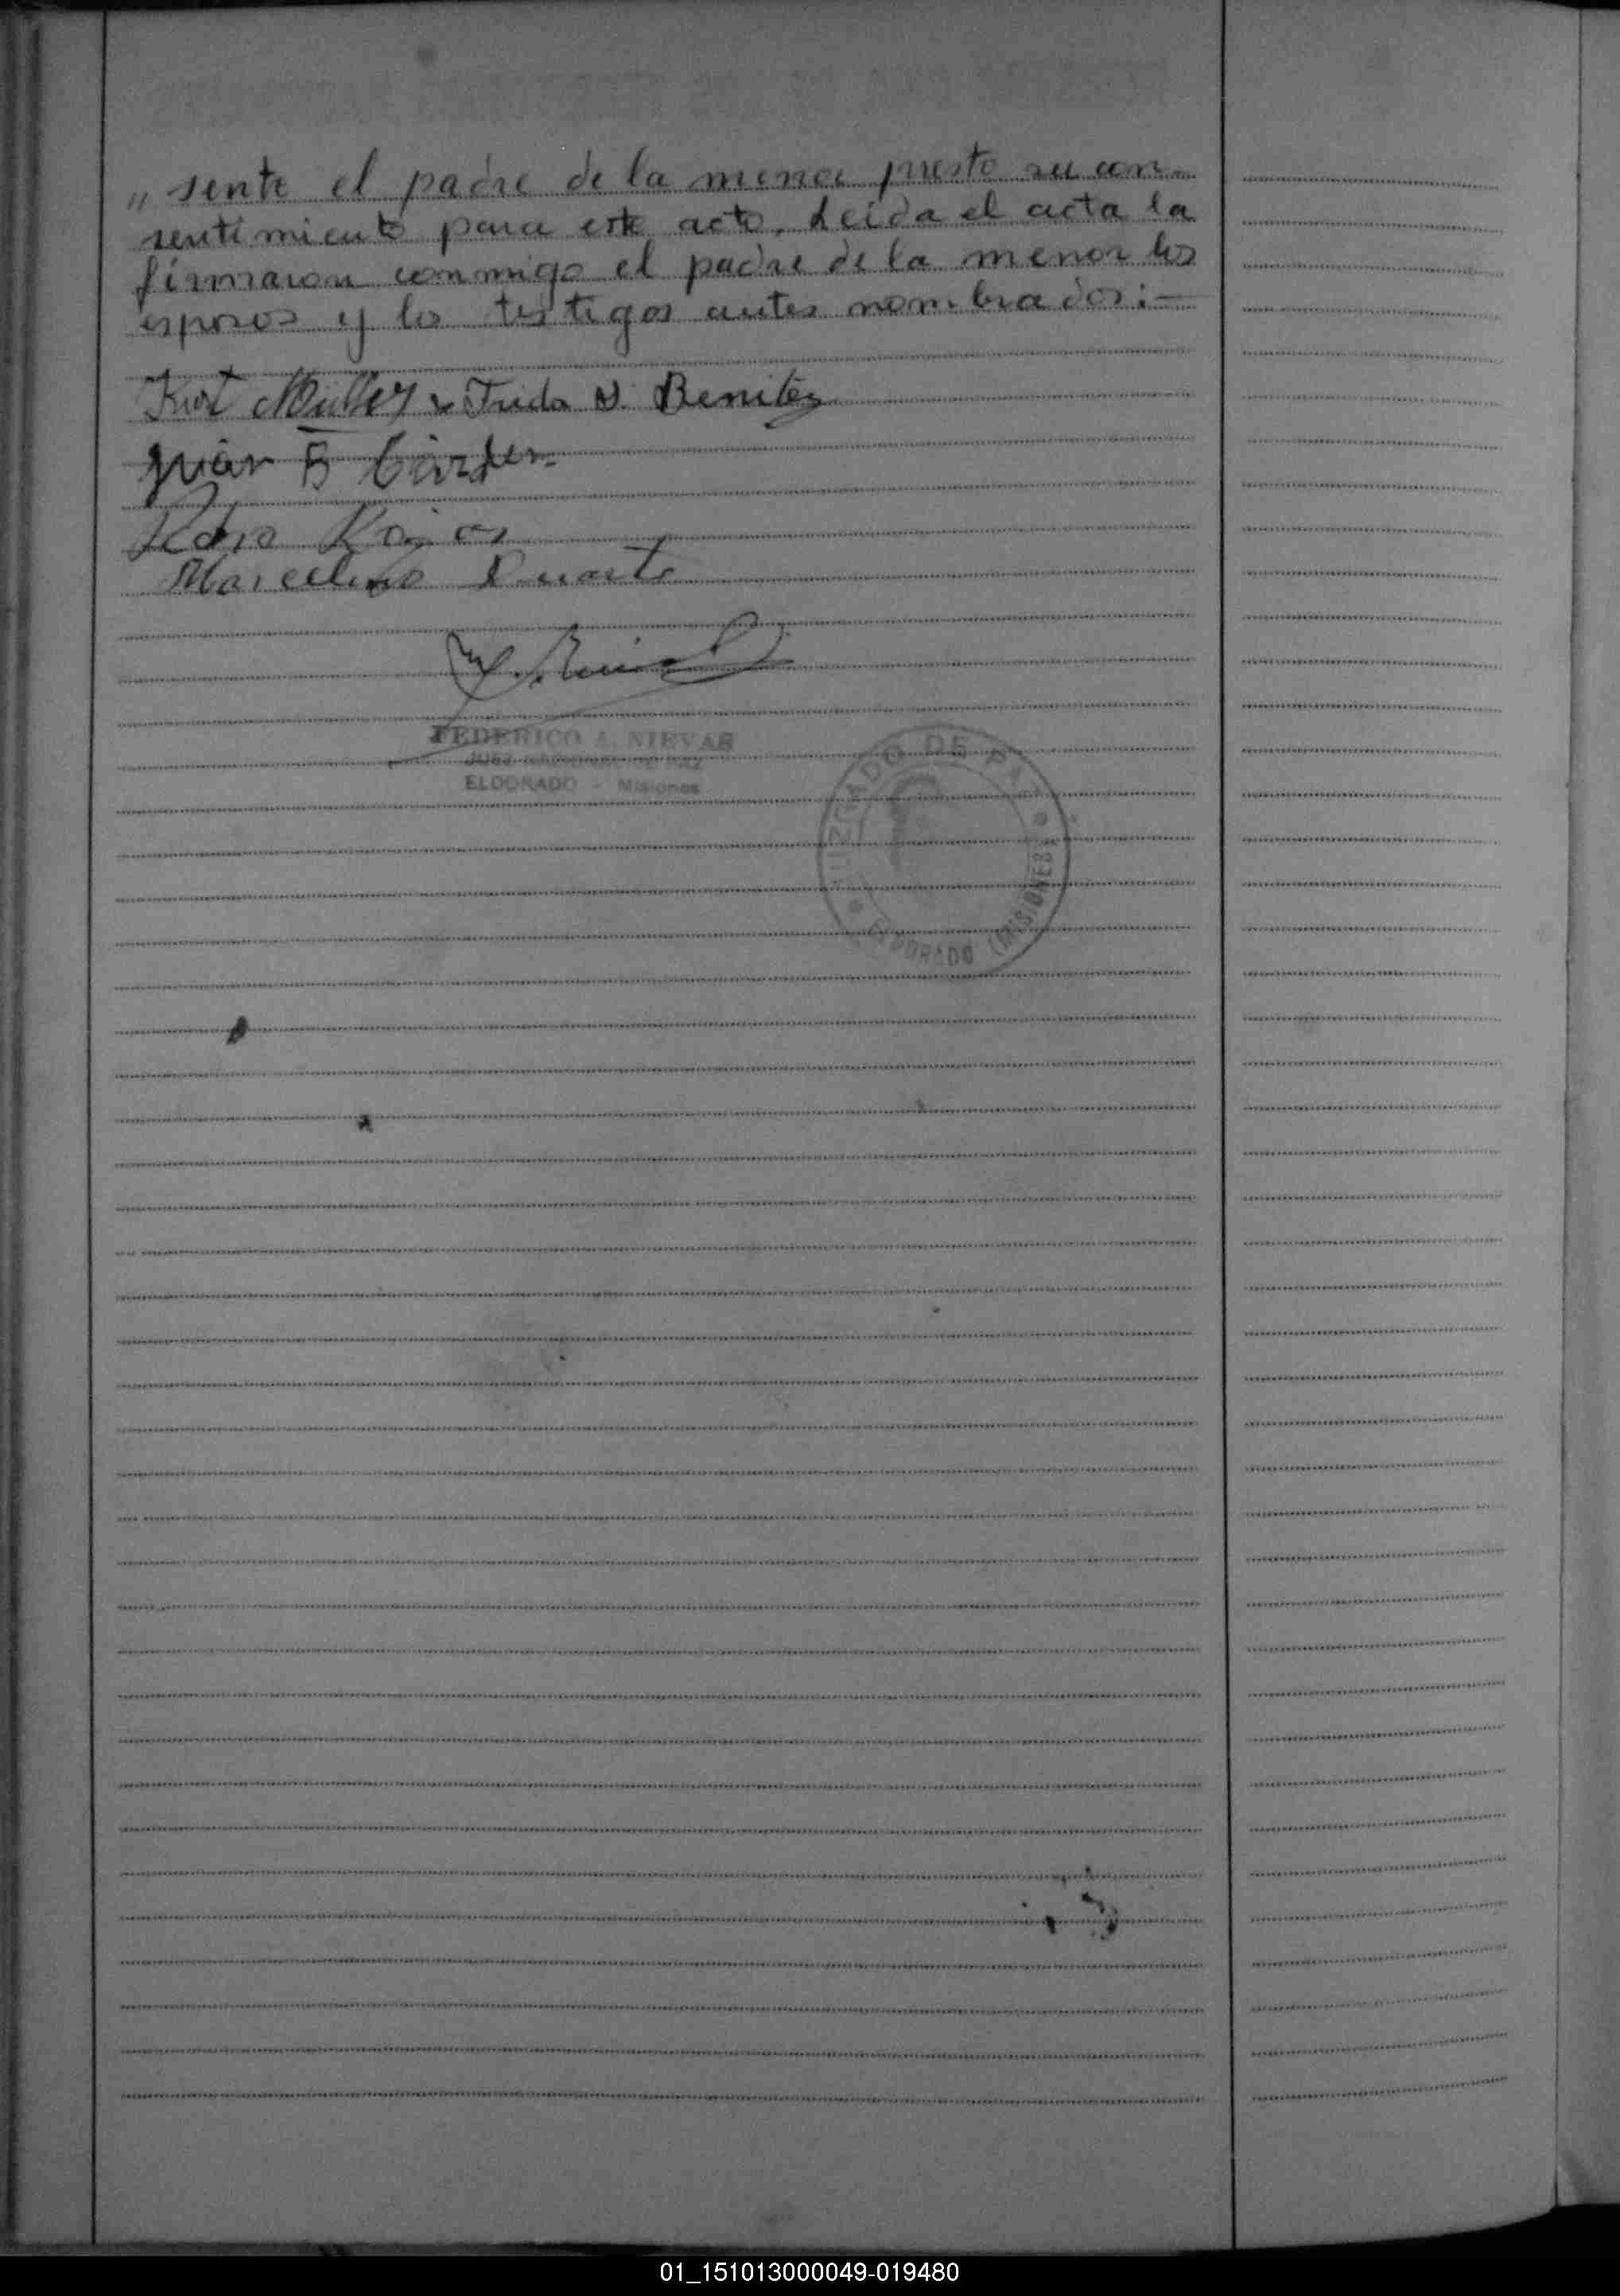 „ sente el padre de la menor presto su con-
sentimiento para este acto. Leida el acta la
firmaron conmigo el padre de la menor los
esposos y los testigos antes nombrados:—
Kurt Müller Frida N. Benitez
Juan B
Pedro Rojas
Marcelino Duarte
FEDERICO A. NIEVAS
JUEZ DE PAZ
ELDORADO - Misiones
JUZGADO DE PAZ
ELDORADO (MISIONES)
01_151013000049-019480